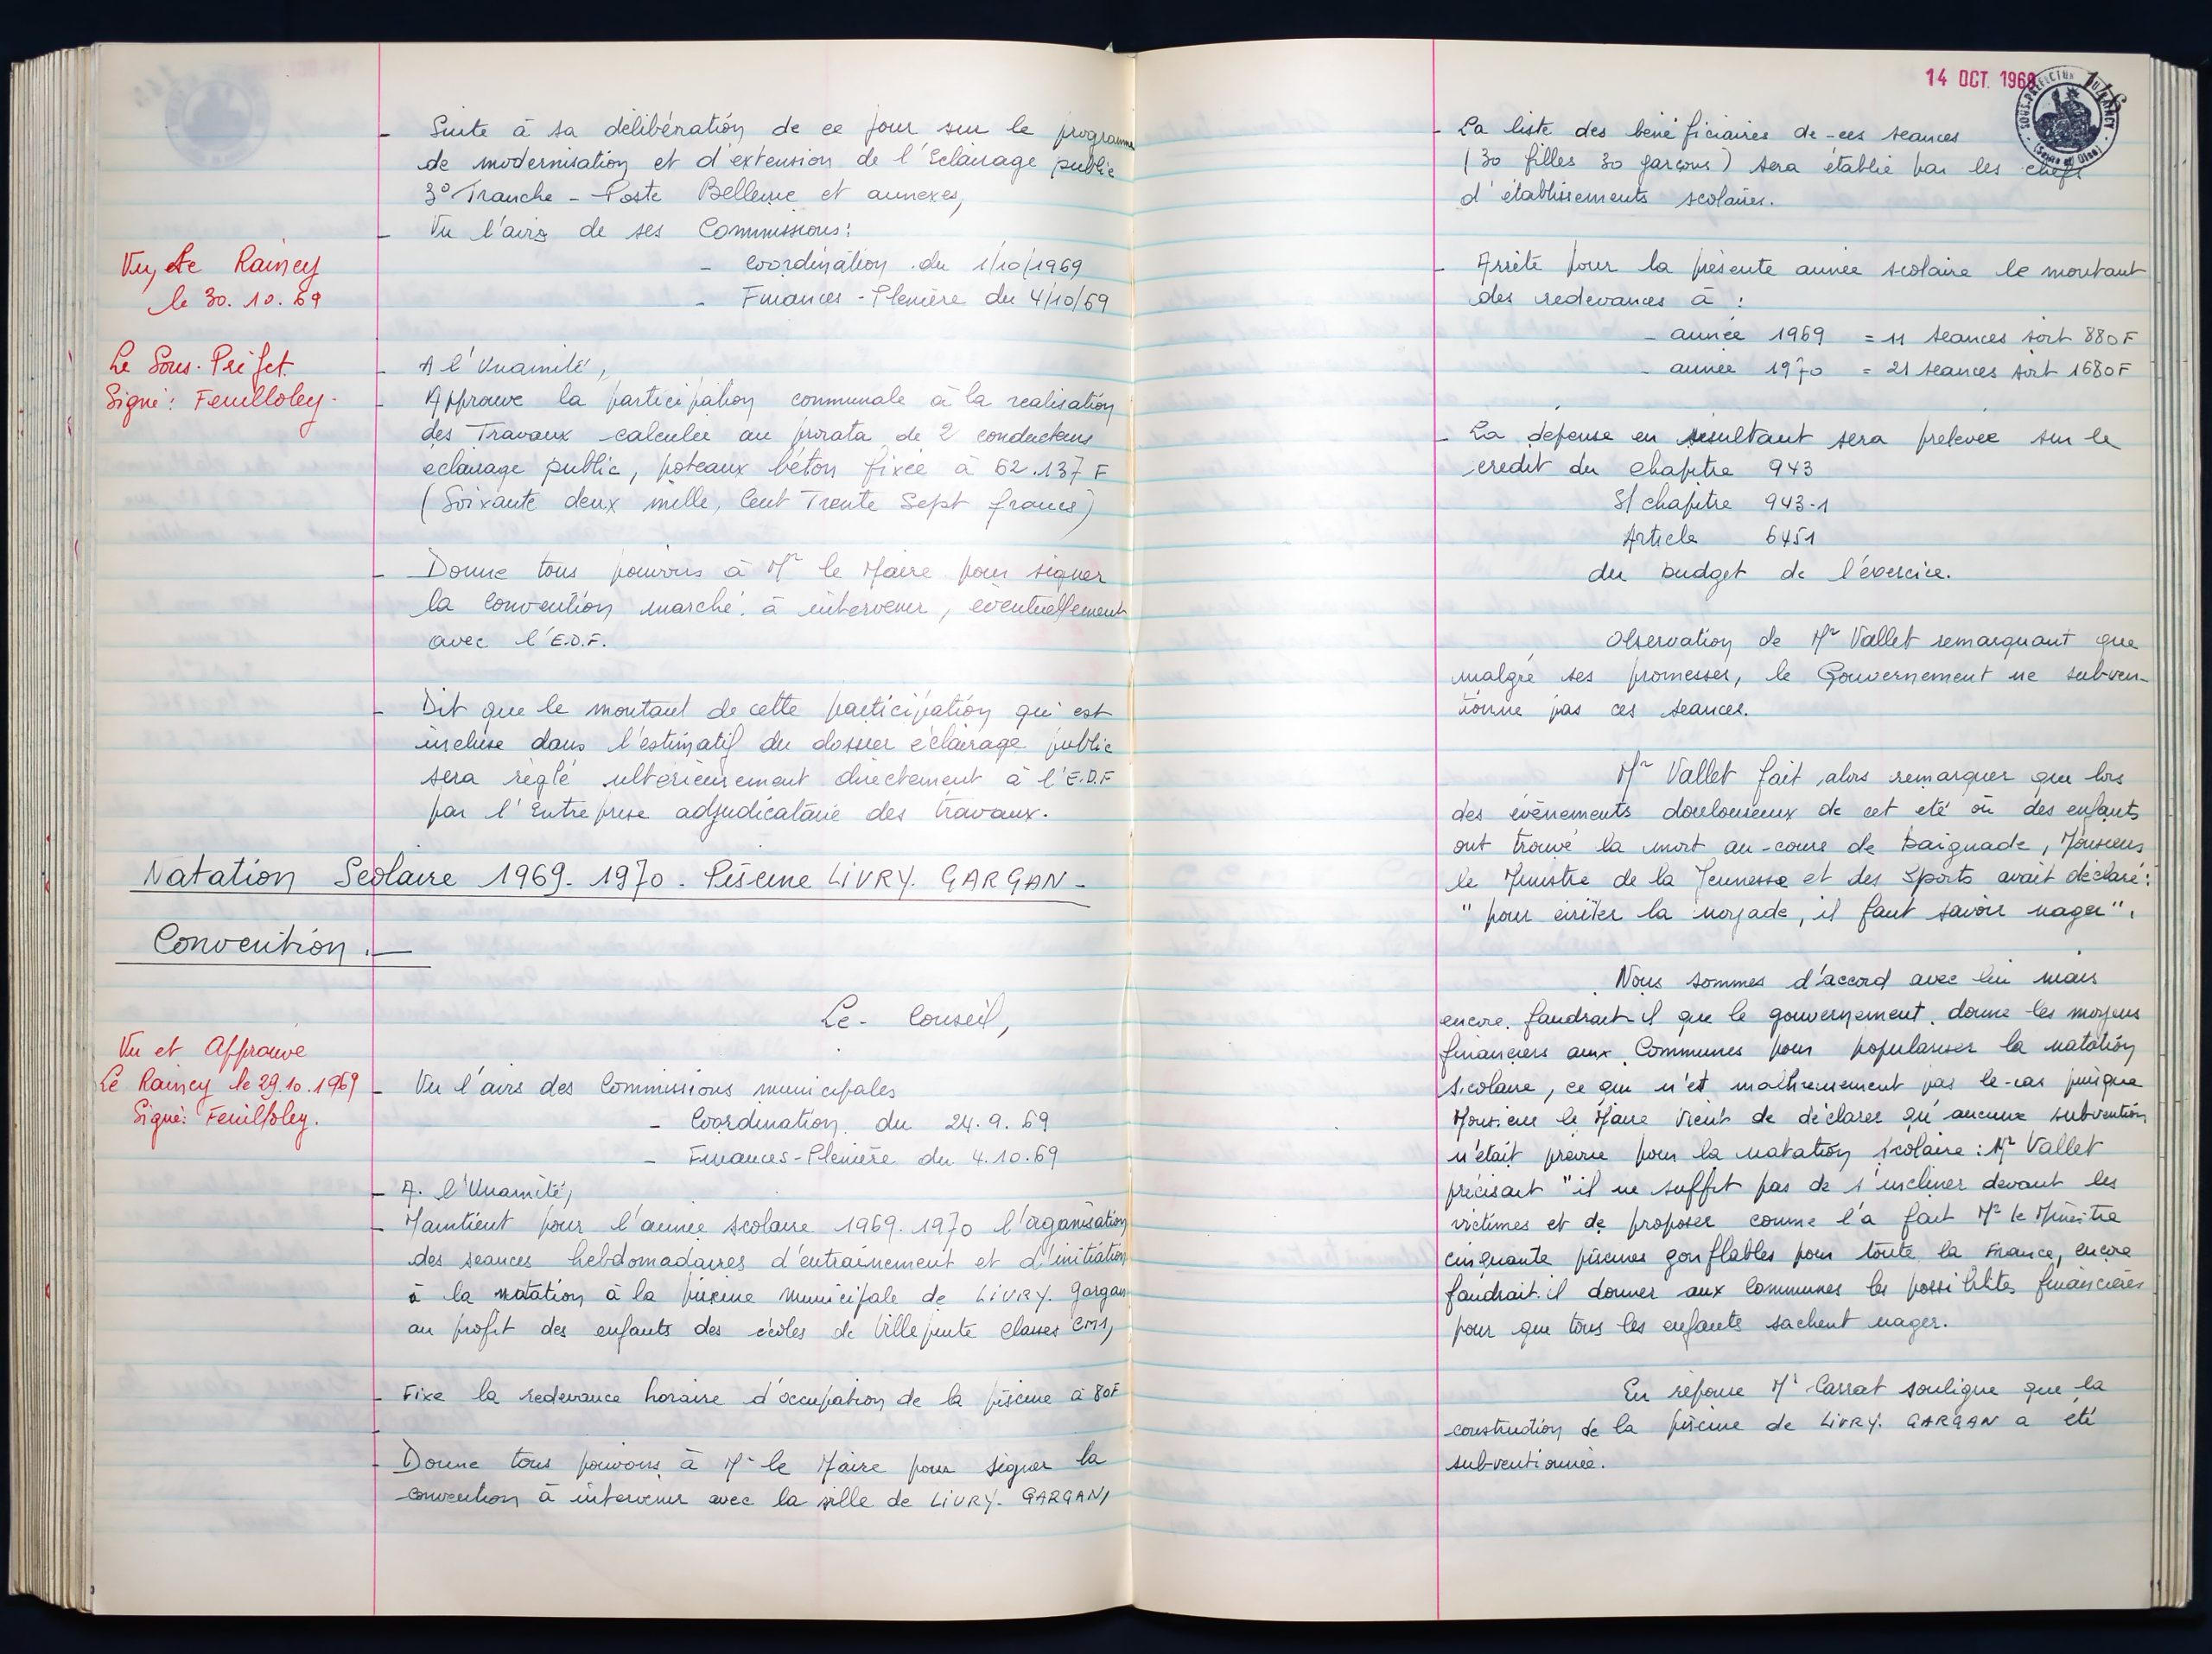 - Suite à sa délibération de ce jour sur le programme
de modernisation et d'extension de l'Eclairage public
3° Tranche - Poste Bellevue et annexes,
- Vu l'avis de ses Commissions:
- Coordination du 1/10/1969
- Finances - Plenière du 4/10/69
Vu, Le Raincy
le 30.10.69
Le Sous-Préfet
Signé: Feuilloley.
- A l'Unamité,
- Approuve la participation communale à la realisation
des Travaux calculée au prorata de 2 conducteurs
éclairage public, poteaux béton fixée à 62.137 F
(Soixante deux mille, Cent Trente Sept francs)
- Donne tous pouvoirs à Mr le Maire pour signer
la Convention marché à intervenir, eventuellement
avec l'E.D.F.
- Dit que le montant de cette participation qui est
incluse dans l'estimatif du dossier éclairage public
sera réglé ultérieurement directement à l'E.D.F
par l'Entreprise adjudicataire des travaux.
Natation Scolaire 1969-1970. Piscine LIVRY. GARGAN-
Convention.-
Le Conseil,
Vu et Approuvé
Le Raincy le 29.10.1969
Signé: Feuilloley.
- Vu l'avis des Commissions municipales
- Coordination du 24.9.69
- Finances-Plenière du 4.10.69
- A. l'Unamité,
- Maintient pour l'année scolaire 1969.1970 l'organisation
des seances hebdomadaires d'entrainement et d'initiation
à la natation à la piscine municipale de LIVRY. Gargan
au profit des enfants des écoles de Villepinte Classes CM1,
- Fixe la redevance horaire d'occupation de la piscine à 80F
-
- Donne tous pouvoirs à Mr le Maire pour signer la
convention à intervenir avec la ville de LIVRY. GARGAN,
14 OCT. 1969
SOUS-PREFECTURE
(Seine et Oise)
- La liste des bénéficiaires de ces seances
(30 filles 30 garçons) sera établie par les chefs
d'établissements scolaires.
- Arrête pour la présente année scolaire le montant
des redevances à :
- année 1969 = 11 seances soit 880 F
- année 1970 = 21 seances soit 1680 F
- La dépense en résultant sera prélevée sur le
credit du chapitre 943
S/chapitre 943-1
Article 6451
du budget de l'exercice.
Observation de Mr Vallet remarquant que
malgré ses promesses, le Gouvernement ne subven-
tionne pas ces seances.
Mr Vallet fait alors remarquer que lors
des évènements douloureux de cet été où des enfants
ont trouvé la mort au cours de baignade, Monsieur
le Ministre de la Jeunesse et des Sports avait déclaré:
" pour éviter la noyade, il faut savoir nager".
Nous sommes d'accord avec lui mais
encore faudrait-il que le gouvernement donne les moyens
financiers aux Communes pour populariser la natation
scolaire, ce qui n'est malheureusement pas le cas puisque
Monsieur le Maire vient de déclarer qu'aucune subvention
n'était prévue pour la natation scolaire: Mr Vallet
précisant "il ne suffit pas de s'incliner devant les
victimes et de proposer comme l'a fait Mr le Ministre
cinquante piscines gonflables pour toute la France, encore
faudrait-il donner aux Communes les possibilités financières
pour que tous les enfants sachent nager.
En réponse Mr Carrat souligne que la
construction de la piscine de LIVRY. GARGAN a été
subventionnée.